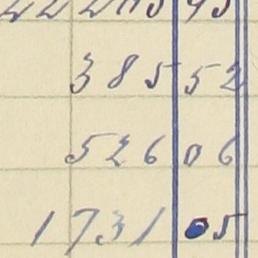 385 52
526 06
1731 05